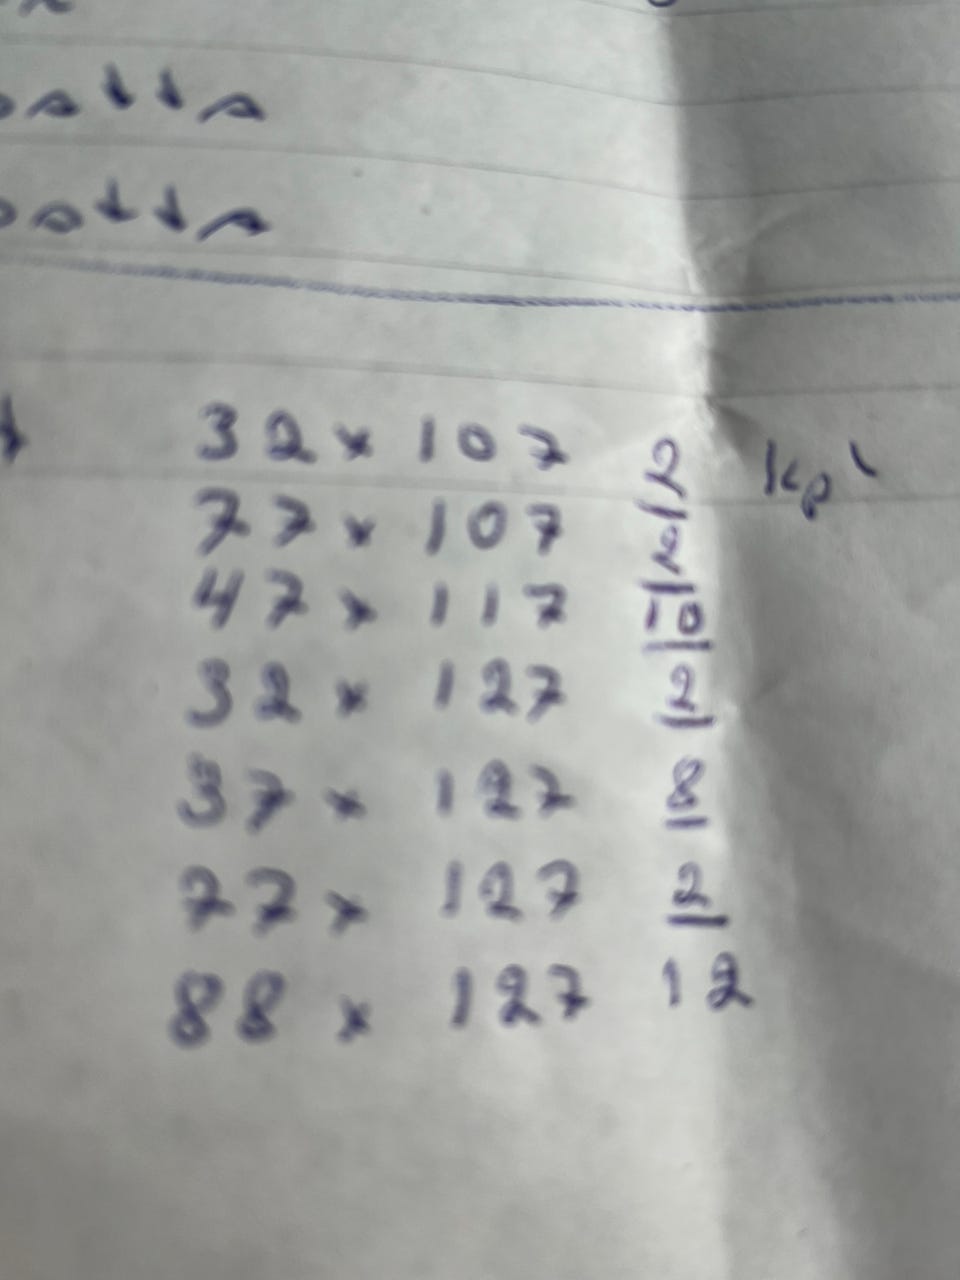 32 x 107 2 kpl
77 x 107 2
47 x 117 10
32 x 127 2
37 x 127 8
77 x 127 2
88 x 127 12